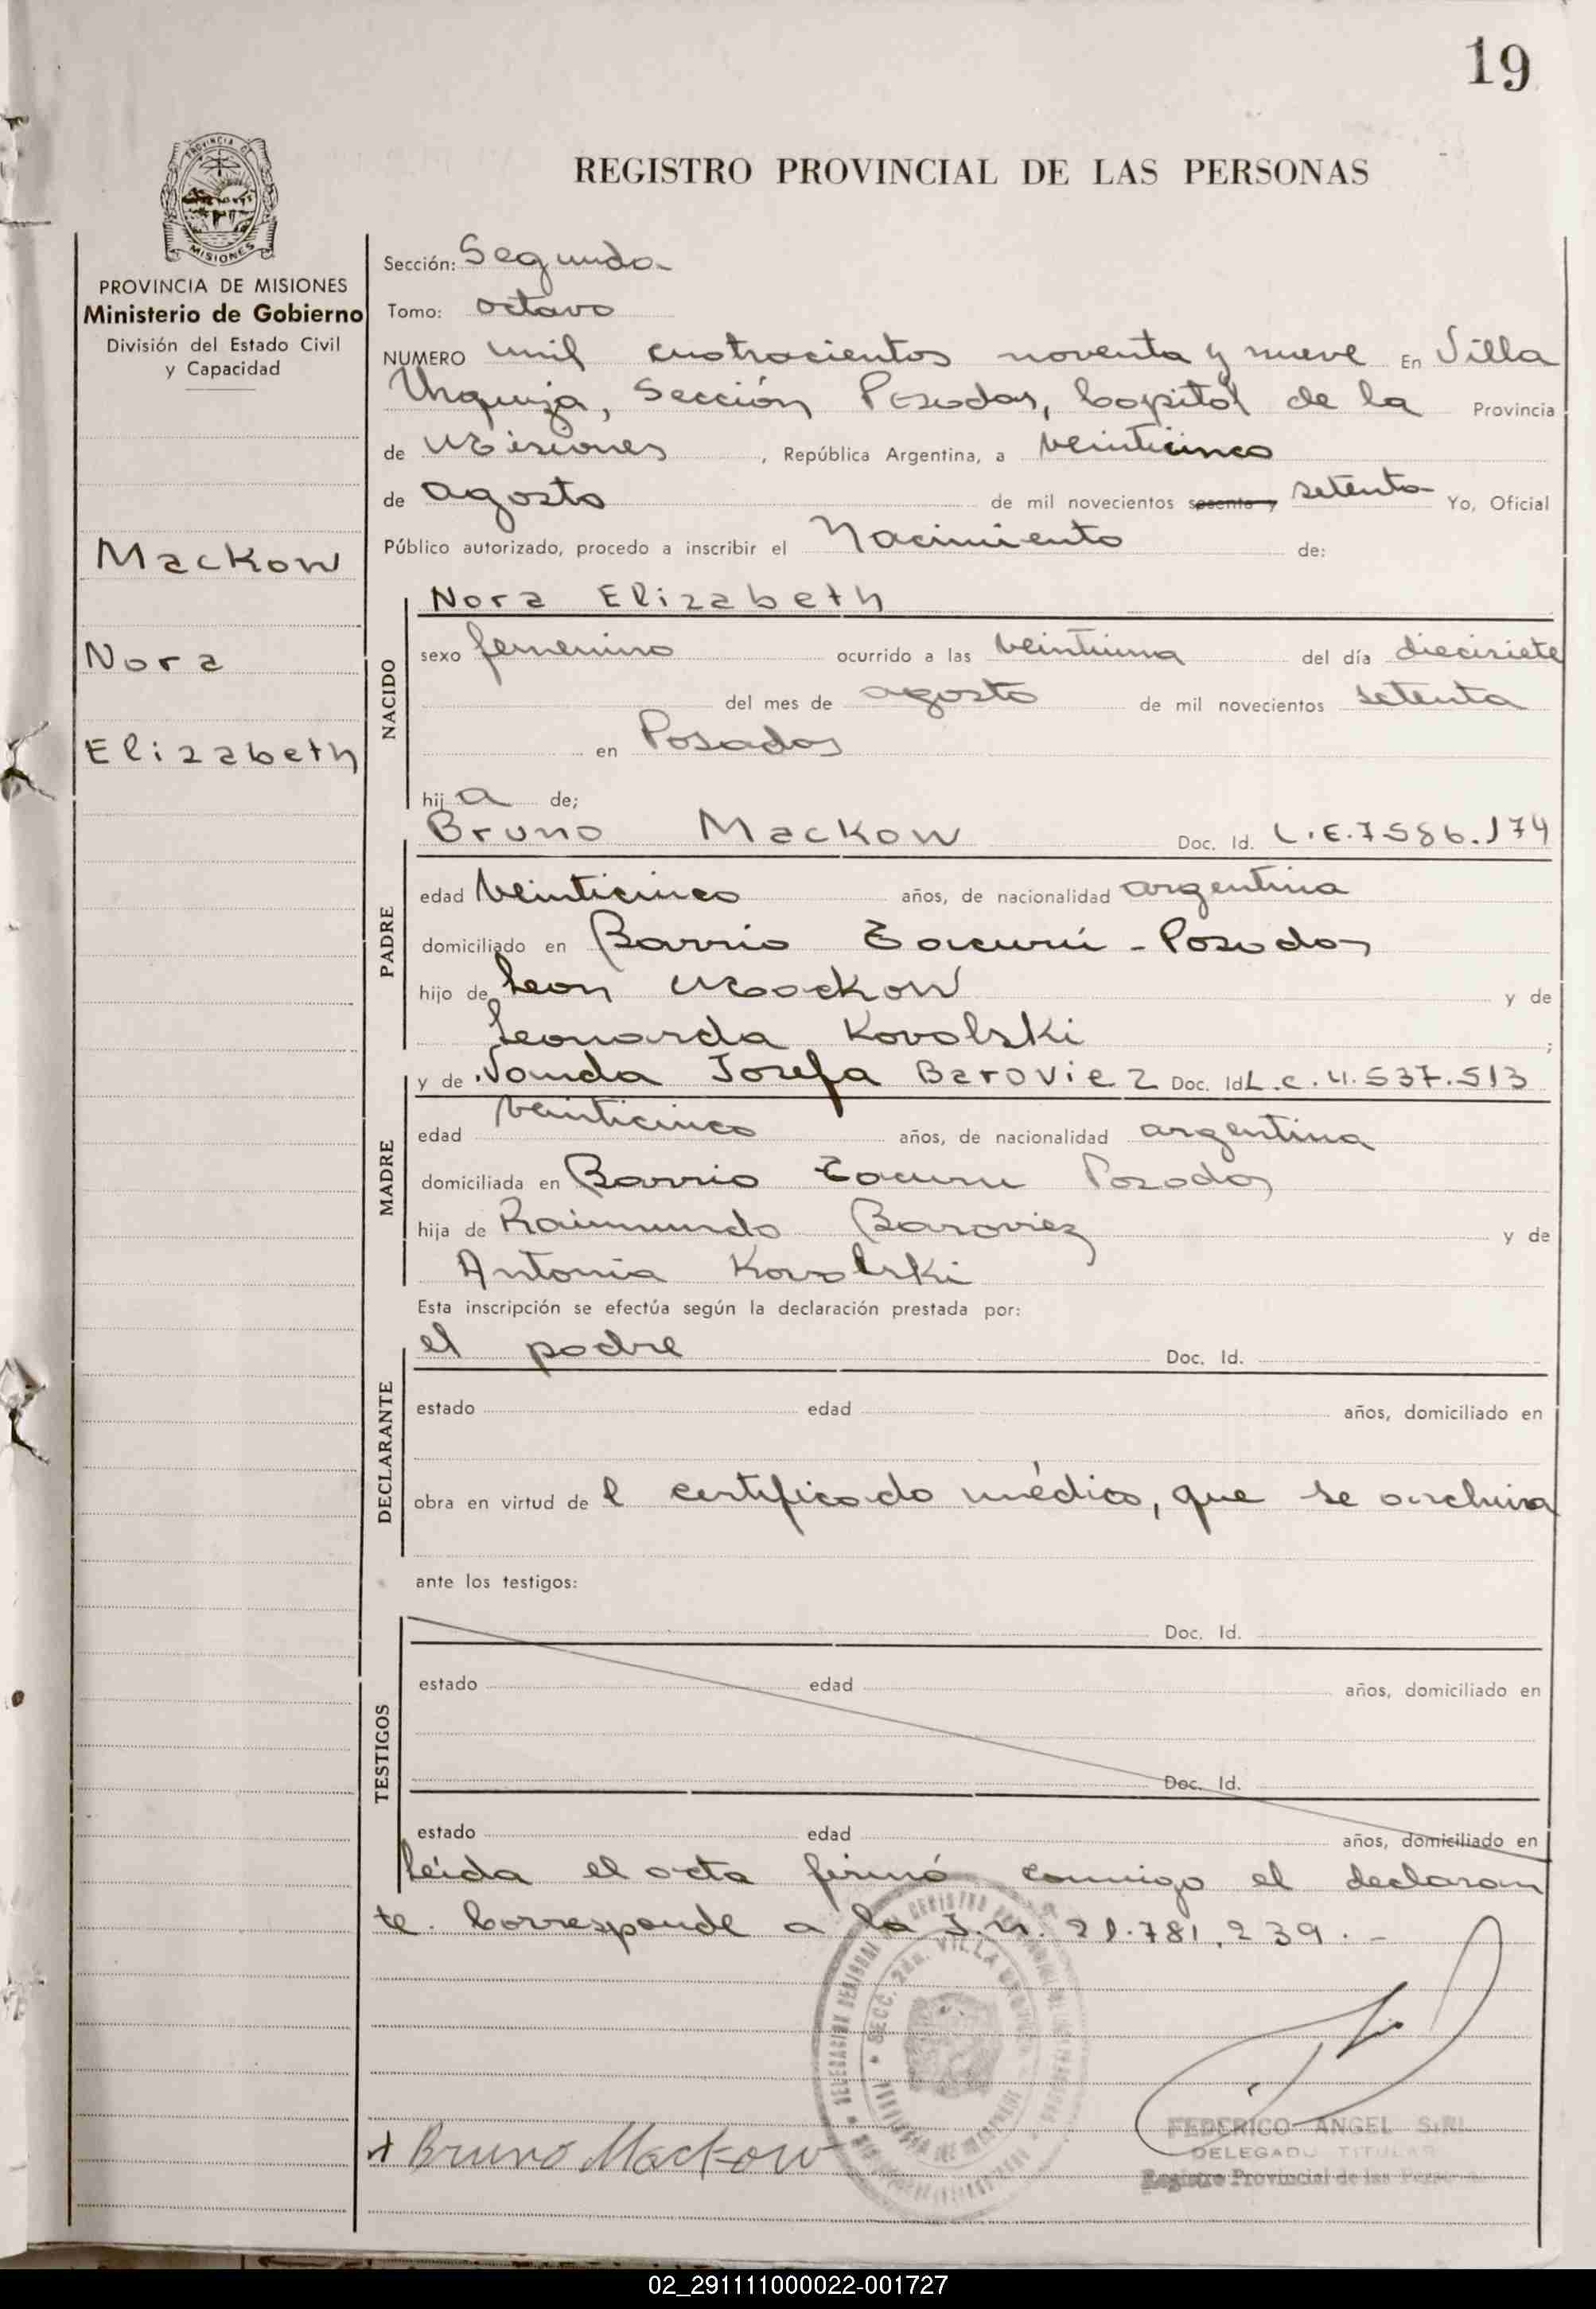 19
REGISTRO PROVINCIAL DE LAS PERSONAS
PROVINCIA DE
MISIONES
PROVINCIA DE MISIONES
Ministerio de Gobierno
División del Estado Civil
y Capacidad
Mackow
Nora
Elizabeth
Sección: Segunda
Tomo: octavo
NUMERO mil cuatrocientos noventa y nueve En Villa
Urquiza, Sección Posadas, Capital de la Provincia
de Misiones, República Argentina, a veinticinco
de agosto de mil novecientos sesenta y setenta Yo, Oficial
Público autorizado, procedo a inscribir el Nacimiento de:
NACIDO
Nora Elizabeth
sexo femenino ocurrido a las veintiuna del día diecisiete
del mes de agosto de mil novecientos setenta
en Posadas
hija de;
PADRE
Bruno Mackow Doc. Id. L.E.7586.174
edad veinticinco años, de nacionalidad argentina
domiciliado en Barrio Tacurú - Posadas
hijo de Leon Mackow y de
Leonarda Kovalski ;
MADRE
y de Vanda Josefa Baroviez Doc. Id L.C.4.537.513
edad veinticinco años, de nacionalidad argentina
domiciliada en Barrio Tacuru Posadas
hija de Raimundo Baroviez y de
Antonia Kovalski
Esta inscripción se efectúa según la declaración prestada por:
DECLARANTE
el padre Doc. Id.
estado edad años, domiciliado en
obra en virtud de l certificado médico, que se archiva
ante los testigos:
TESTIGOS
Doc. Id.
estado edad años, domiciliado en
Doc. Id.
estado edad años, domiciliado en
Leída el acta firmó conmigo el declaran
te. Corresponde a la I.N. 21.781.239.-
SECC. 2da. VILLA URQUIZA
Bruno Mackow
FEDERICO ANGEL
DELEGADO TITULAR
Registro Provincial de las Personas
02_291111000022-001727